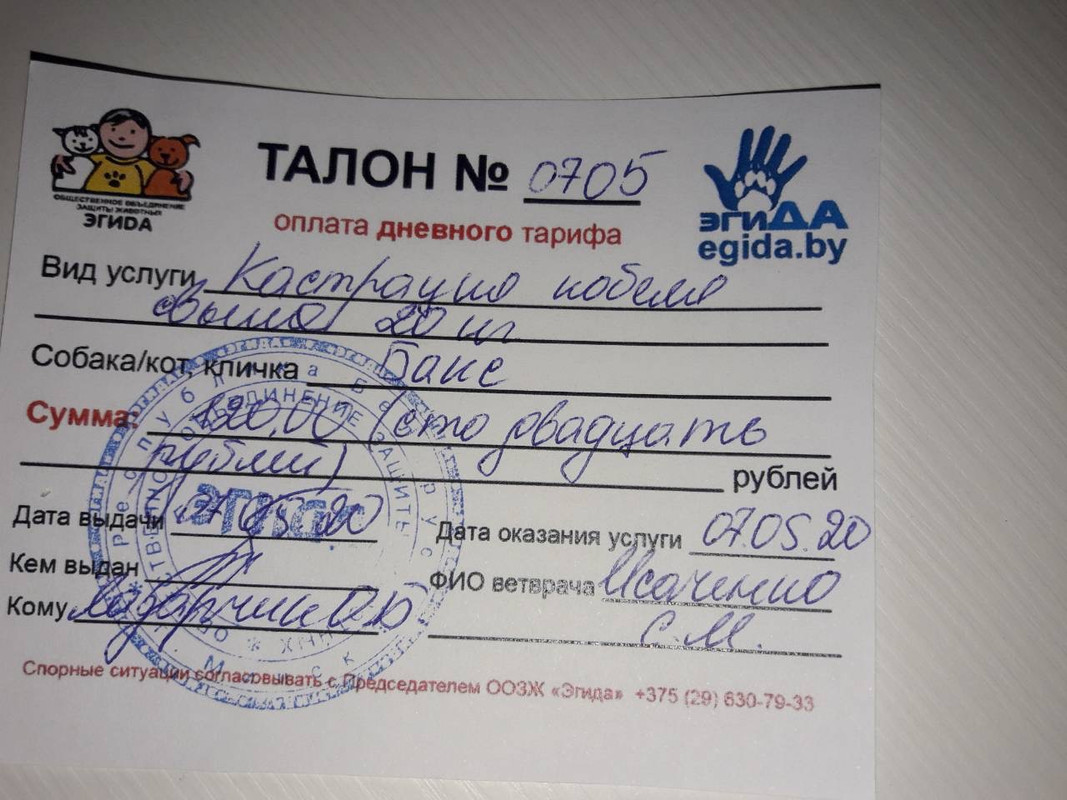 ОБЩЕСТВЕННОЕ ОБЪЕДИНЕНИЕ
ЗАЩИТЫ ЖИВОТНЫХ
ЭГИДА
ТАЛОН № 0705
оплата дневного тарифа
эгиДА
egida.by
Вид услуги Кастрация кобеля
свыше 20 кг
Собака/кот, кличка Бакс
Сумма: 120,00 (сто двадцать
рублей) рублей
Дата выдачи 07.05.20
Дата оказания услуги 07.05.20
Кем выдан
ФИО ветврача Исаченко
С.М.
Кому
Спорные ситуации согласовывать с Председателем ООЗЖ «Эгида» +375 (29) 630-79-33
Республика Беларусь
ОБЪЕДИНЕНИЕ ЗАЩИТЫ
ЭГИДА
Минск